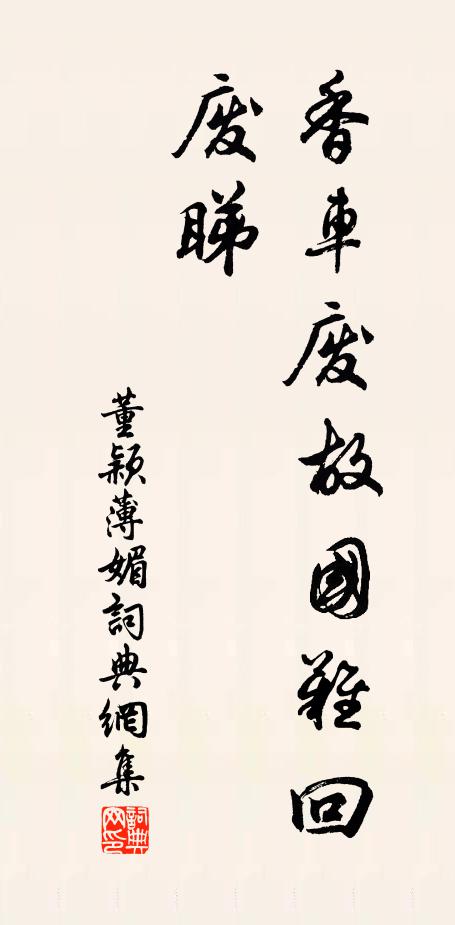 香車废故國難回
废睇
董穎薄媚詞典網集
詞典網印